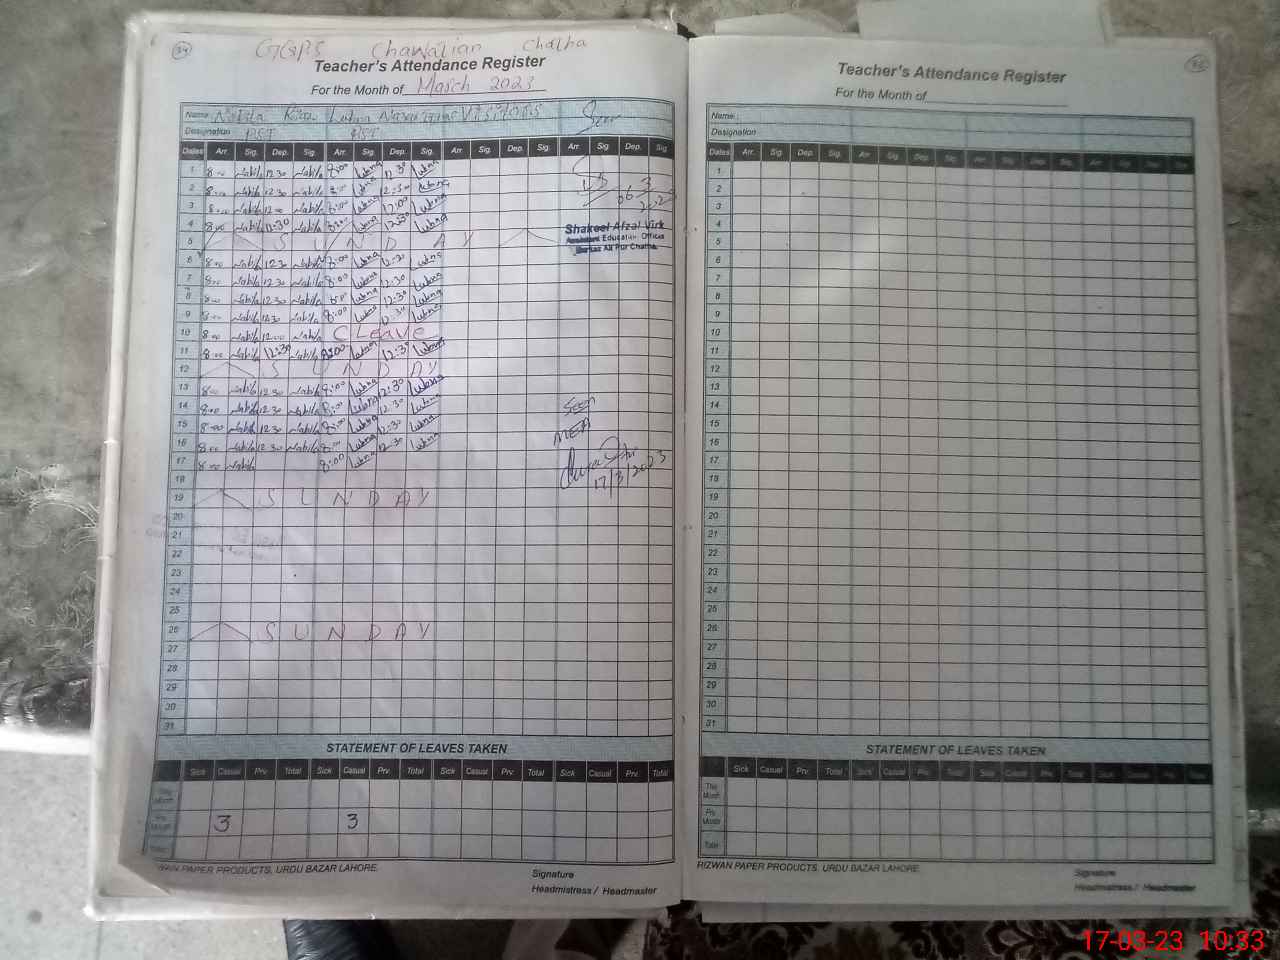 34
GGPS Chawalian Chatha
Teacher's Attendance Register
For the Month of March 2023
Name Nabila Riaz Lubna Nazar VISITORS
Designation PST PST
Dates Arr. Sig. Dep. Sig. Arr. Sig. Dep. Sig. Arr. Sig. Dep. Sig. Arr. Sig. Dep. Sig.
1 8:00 Nabila 12:30 Nabila 8:00 Lubna 12:30 Lubna
2 8:00 Nabila 12:30 Nabila 8:00 Lubna 12:30 Lubna
3 8:00 Nabila 12:00 Nabila 8:00 Lubna 12:00 Lubna
4 8:00 Nabila 12:30 Nabila 8:00 Lubna 12:30 Lubna
5 SUNDAY
6 8:00 Nabila 12:30 Nabila 8:00 Lubna 12:30 Lubna
7 8:00 Nabila 12:30 Nabila 8:00 Lubna 12:30 Lubna
8 8:00 Nabila 12:30 Nabila 8:00 Lubna 12:30 Lubna
9 8:00 Nabila 12:30 Nabila 8:00 Lubna 12:30 Lubna
10 8:00 Nabila 12:00 Nabila C Leave
11 8:00 Nabila 12:30 Nabila 8:00 Lubna 12:30 Lubna
12 SUNDAY
13 8:00 Nabila 12:30 Nabila 8:00 Lubna 12:30 Lubna
14 8:00 Nabila 12:30 Nabila 8:00 Lubna 12:30 Lubna
15 8:00 Nabila 12:30 Nabila 8:00 Lubna 12:30 Lubna
16 8:00 Nabila 12:30 Nabila 8:00 Lubna 12:30 Lubna
17 8:00 Nabila 8:00 Lubna
18
19 SUNDAY
20
21
22
23
24
25
26 SUNDAY
27
28
29
30
31
Seen
06 3 2023
Shakeel Afzal Virk
Assistant Education Officer
Markaz Ali Pur Chatha
Seen
MEA
17/3/2023
STATEMENT OF LEAVES TAKEN
Sick Casual Prv. Total Sick Casual Prv. Total Sick Casual Prv. Total Sick Casual Prv. Total
This Month
Prv. Month 3 3
Total
WAN PAPER PRODUCTS, URDU BAZAR LAHORE.
Signature
Headmistress / Headmaster
Teacher's Attendance Register
For the Month of
Name :
Designation
Dates Arr. Sig. Dep. Sig. Arr. Sig. Dep. Sig. Arr. Sig. Dep. Sig. Arr. Sig. Dep. Sig.
1
2
3
4
5
6
7
8
9
10
11
12
13
14
15
16
17
18
19
20
21
22
23
24
25
26
27
28
29
30
31
STATEMENT OF LEAVES TAKEN
Sick Casual Prv. Total Sick Casual Prv. Total Sick Casual Prv. Total Sick Casual Prv. Total
This Month
Prv. Month
Total
RIZWAN PAPER PRODUCTS, URDU BAZAR LAHORE.
Signature
Headmistress / Headmaster
17-03-23 10:33